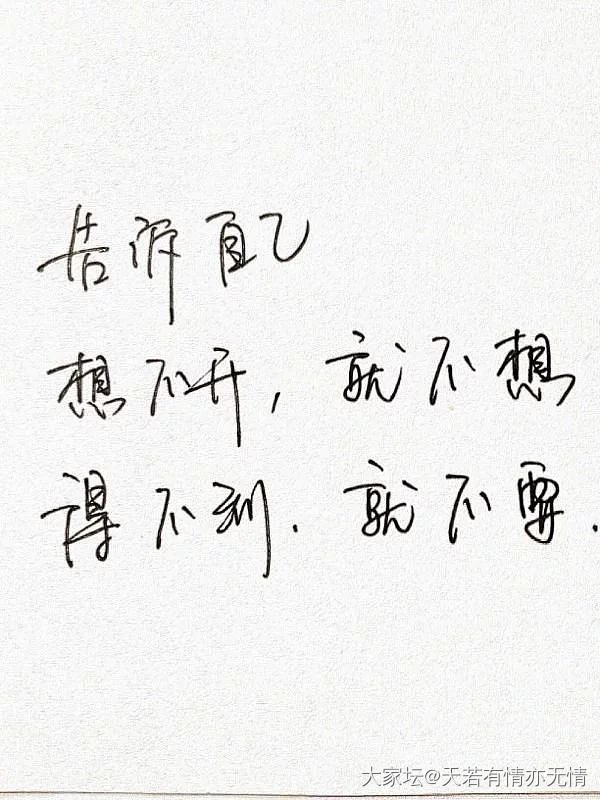 告诉自己
想不开,就不想
得不到.就不要.
大家坛@天若有情亦无情